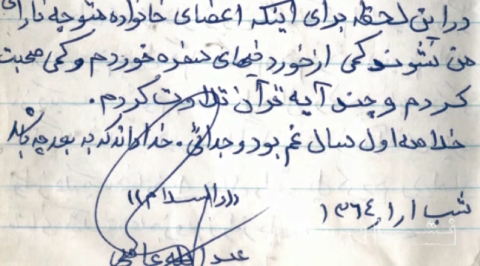 در این لحظه برای اینکه اعضای خانواده متوجه ناراحتی
من نشوند کمی از خوردنیهای سفره خوردم و کمی صحبت
کردم و چند آیه قرآن تلاوت کردم.
خلاصه اول سال غم بود و جدائی. خدا داند که به بعد چه باشد
((والسلام))
شب ۱ ر ۱ ر ۱۳۶۴
عبدالله